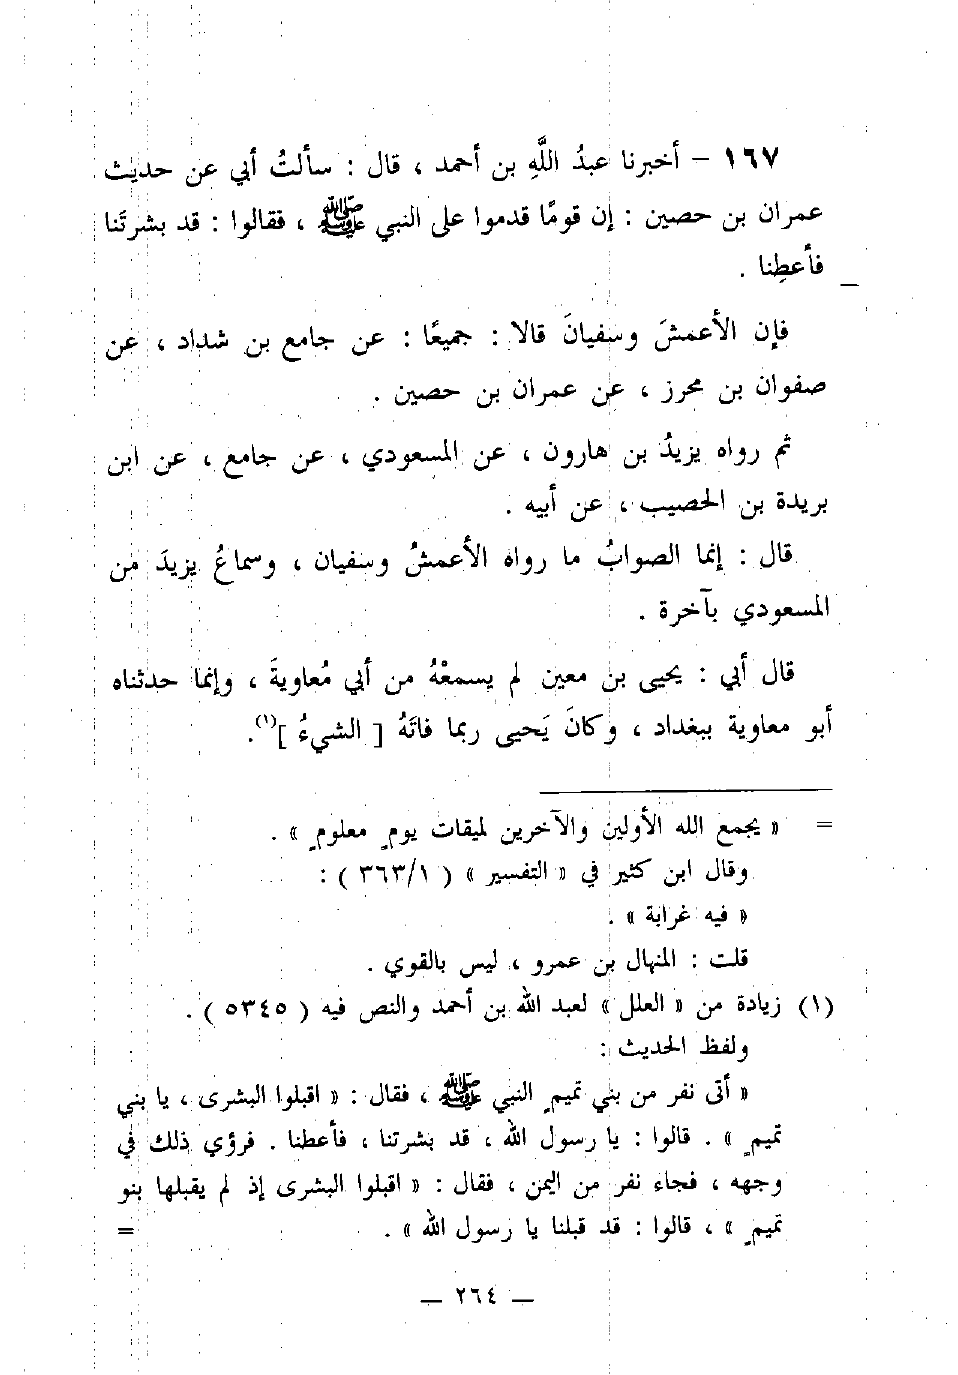 ١٦٧ – أخبرنا عبدُ اللَّهِ بن أحمد ، قال : سألتُ أبي عن حديث
عمران بن حصين : إن قومًا قدموا على النبي ﷺ ، فقالوا : قد بشرتَنا
فأعطِنا .
فإن الأعمشَ وسفيانَ قالا : جميعًا : عن جامع بن شداد ، عن
صفوان بن محرز ، عن عمران بن حصين .
ثم رواه يزيدُ بن هارون ، عن المسعودي ، عن جامع ، عن ابن
بريدة بن الحصيب ، عن أبيه .
قال : إنما الصوابُ ما رواه الأعمشُ وسفيان ، وسماعُ يزيدَ من
المسعودي بآخرة .
قال أبي : يحيى بن معين لم يسمعْهُ من أبي مُعاويةَ ، وإنما حدثناه
أبو معاوية ببغداد ، وكانَ يَحيى ربما فاتَهُ [ الشيءُ ](١).
= « يجمع الله الأولين والآخرين لميقات يومٍ معلومٍ » .
وقال ابن كثير في « التفسير » ( ٣٦٣/١ ) :
« فيه غرابة » .
قلت : المنهال بن عمرو ، ليس بالقوي .
(١) زيادة من « العلل » لعبد الله بن أحمد والنص فيه ( ٥٣٤٥ ) .
ولفظ الحديث :
« أتى نفر من بني تميمٍ النبي ﷺ ، فقال : « اقبلوا البشرى ، يا بني
تميمٍ » . قالوا : يا رسول الله ، قد بشرتنا ، فأعطنا . فرؤي ذلك في
وجهه ، فجاء نفر من اليمن ، فقال : « اقبلوا البشرى إذ لم يقبلها بنو
تميمٍ » ، قالوا : قد قبلنا يا رسول الله » . =
— ٢٦٤ —